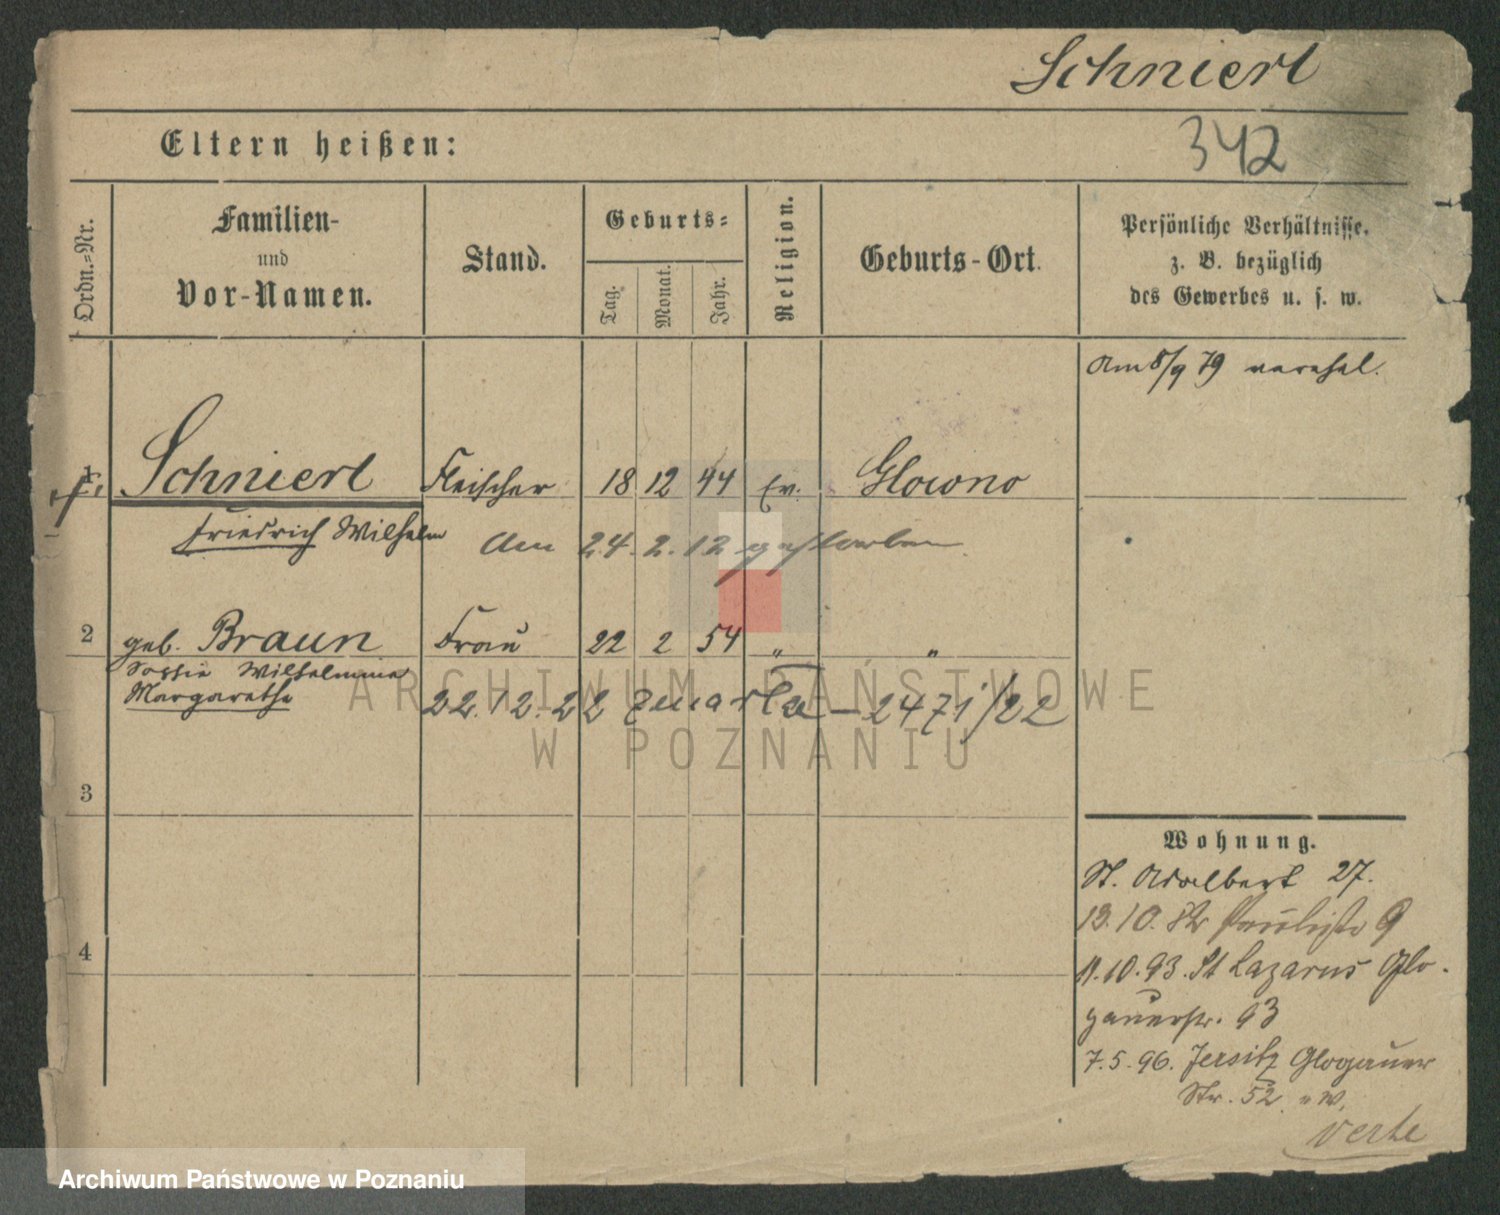 Schnierl
342
Eltern heißen:
Ordn.-Nr.
Familien-
und
Vor-Namen.
Stand.
Geburts-
Tag.
Monat.
Jahr.
Religion.
Geburts-Ort.
Persönliche Verhältnisse,
z. B. bezüglich
des Gewerbes u. s. w.
Am 5/9 79 verehel.
1
Schnierl Fleischer 18 12 44 Ev. Glowno
Friedrich Wilhelm
Am 24. 2. 12 gestorben
2 geb. Braun Frau 22 2 54 " "
Sophie Wilhelmine
Margarethe
22.12.22 zmarła – 2471/22
3
4
Wohnung.
St. Adalbert 27.
13.10. 9
11.10.93. St Lazarus Glo-
gauerstr. 93
7.5.96. Jersitz Glogauer
Str. 52
verte
ARCHIWUM PAŃSTWOWE
W POZNANIU
Archiwum Państwowe w Poznaniu